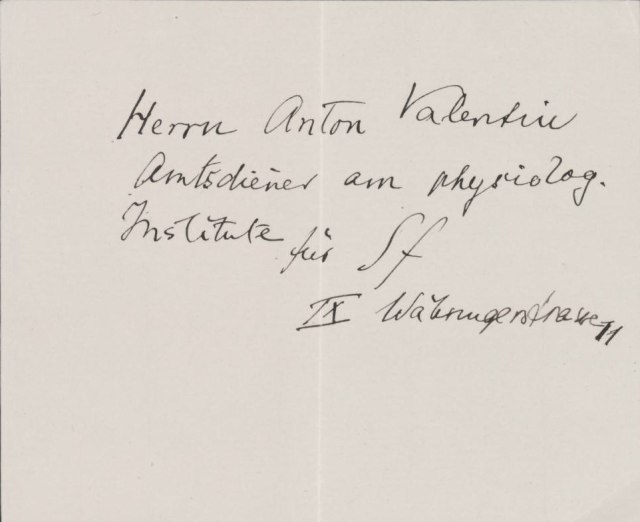 Herrn Anton Valentin
Amtsdiener am physiolog.
Institute für Sf
IX Währingerstrasse